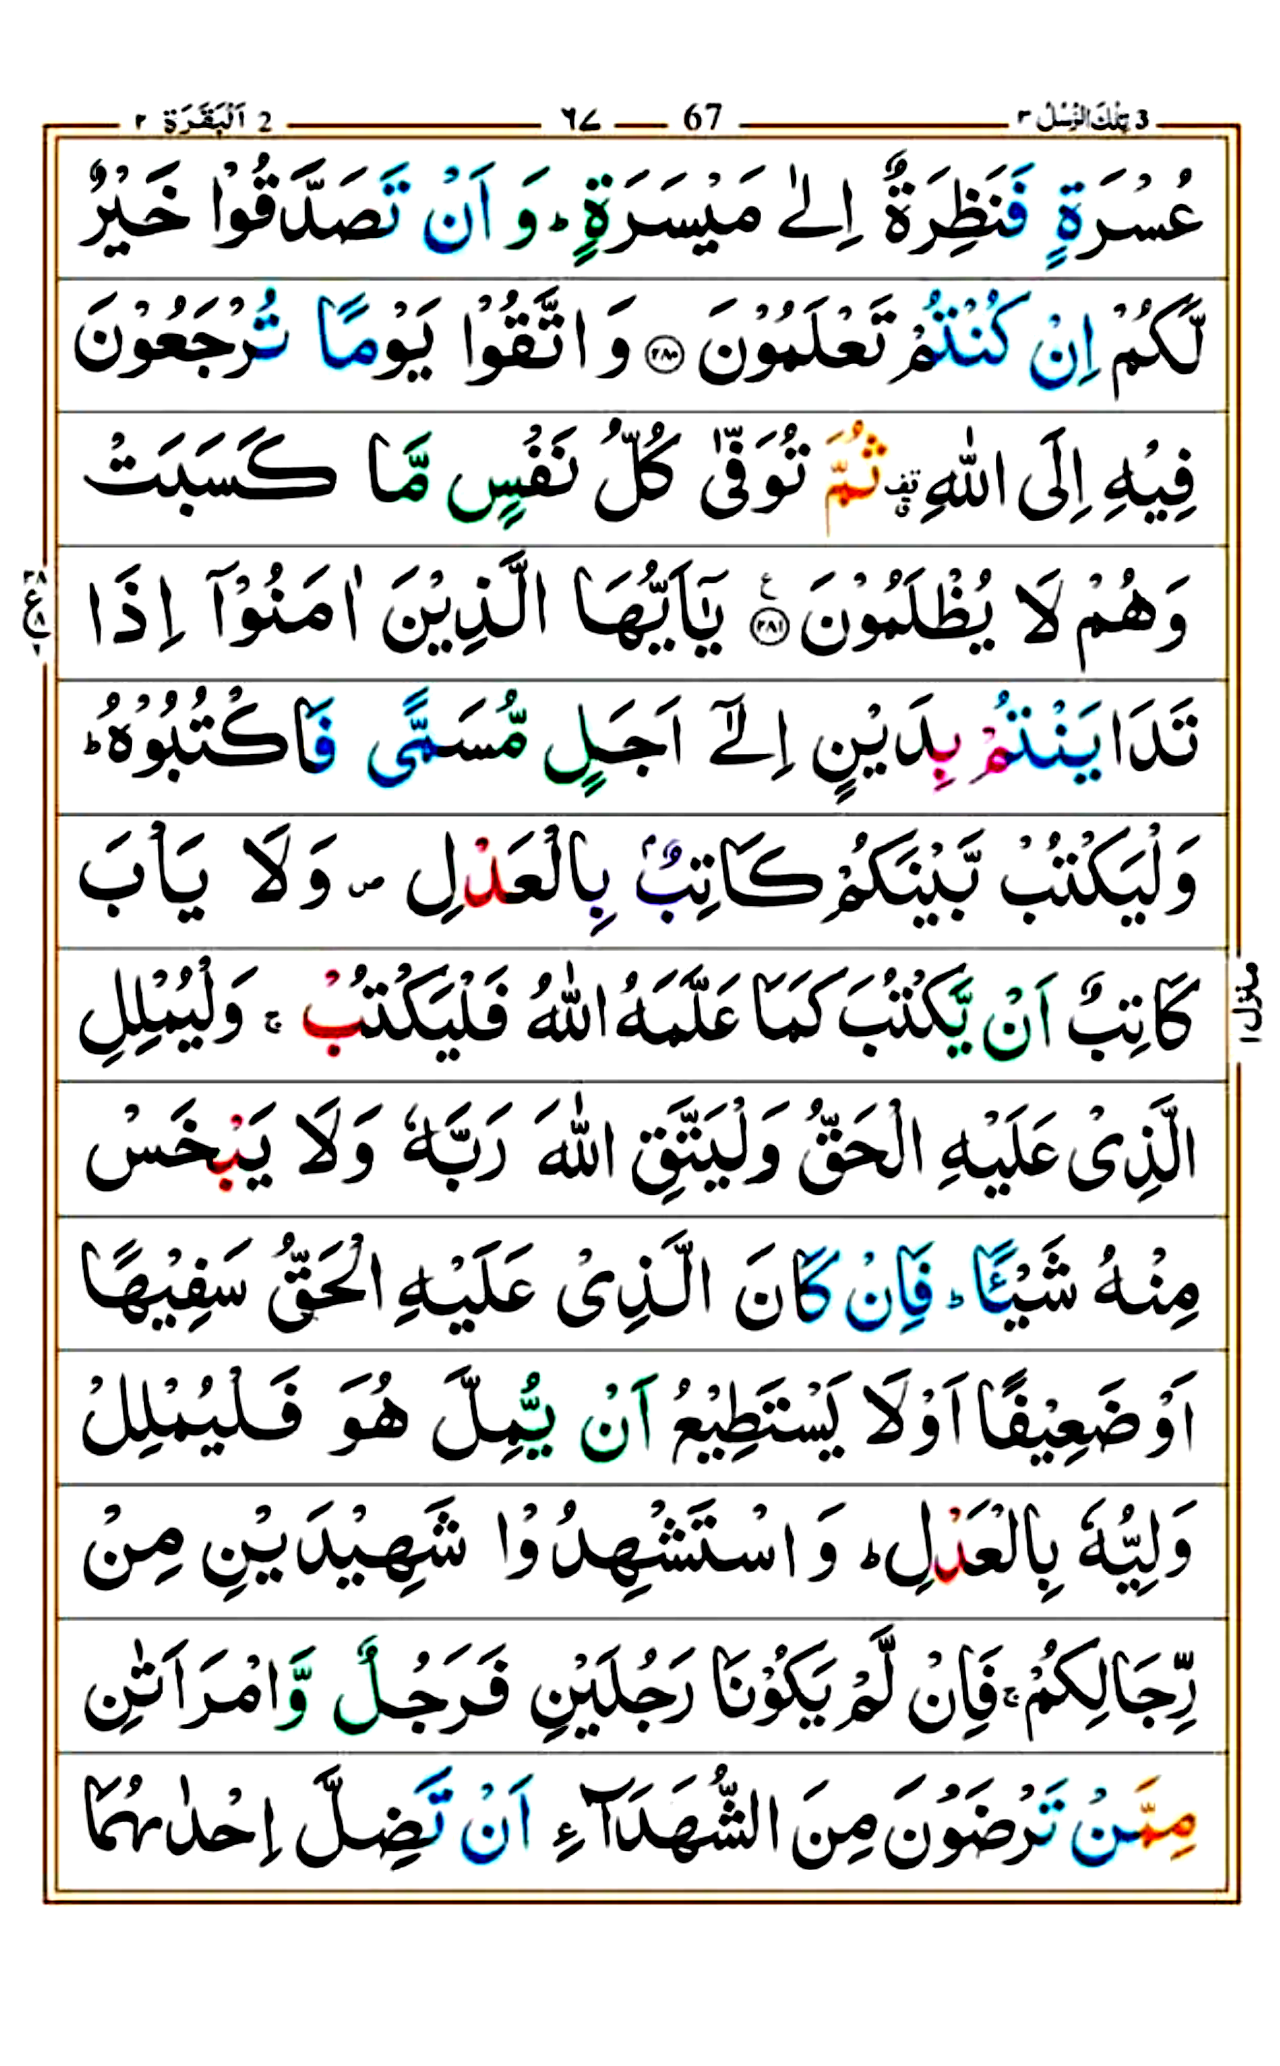 3 تِلْكَ الرُّسُلُ ٣ 67 ٦٧ 2 اَلْبَقَرَة ٢
عُسْرَةٍ فَنَظِرَةٌ اِلٰى مَيْسَرَةٍ ؕ وَ اَنْ تَصَدَّقُوْا خَيْرٌ
لَّكُمْ اِنْ كُنْتُمْ تَعْلَمُوْنَ ﴿۲۸۰﴾ وَ اتَّقُوْا يَوْمًا تُرْجَعُوْنَ
فِيْهِ اِلَى اللّٰهِ ثُمَّ تُوَفّٰى كُلُّ نَفْسٍ مَّا كَسَبَتْ
وَهُمْ لَا يُظْلَمُوْنَ ﴿۲۸۱﴾ يٰۤاَيُّهَا الَّذِيْنَ اٰمَنُوْۤا اِذَا
تَدَايَنْتُمْ بِدَيْنٍ اِلٰۤى اَجَلٍ مُّسَمًّى فَاكْتُبُوْهُ ؕ
وَلْيَكْتُبْ بَّيْنَكُمْ كَاتِبٌۢ بِالْعَدْلِ ۪ وَلَا يَاْبَ
كَاتِبٌ اَنْ يَّكْتُبَ كَمَا عَلَّمَهُ اللّٰهُ فَلْيَكْتُبْ ۚ وَلْيُمْلِلِ
الَّذِيْ عَلَيْهِ الْحَقُّ وَلْيَتَّقِ اللّٰهَ رَبَّهٗ وَلَا يَبْخَسْ
مِنْهُ شَيْـًٔا ؕ فَاِنْ كَانَ الَّذِيْ عَلَيْهِ الْحَقُّ سَفِيْهًا
اَوْ ضَعِيْفًا اَوْ لَا يَسْتَطِيْعُ اَنْ يُّمِلَّ هُوَ فَلْيُمْلِلْ
وَلِيُّهٗ بِالْعَدْلِ ؕ وَ اسْتَشْهِدُوْا شَهِيْدَيْنِ مِنْ
رِّجَالِكُمْ ۚ فَاِنْ لَّمْ يَكُوْنَا رَجُلَيْنِ فَرَجُلٌ وَّامْرَاَتٰنِ
مِمَّنْ تَرْضَوْنَ مِنَ الشُّهَدَآءِ اَنْ تَضِلَّ اِحْدٰىهُمَا
منزل ١